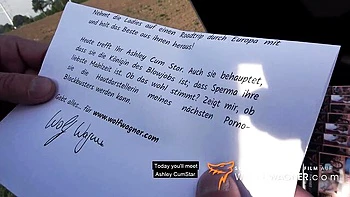 Nehmt die Ladies auf einen Roadtrip durch Europa mit
und holt das Beste aus ihnen heraus!
Heute trefft Ihr Ashley Cum Star. Auch sie behauptet,
dass sie die Königin des Blowjobs ist, dass Sperma ihre
liebste Mahlzeit ist. Ob das wohl stimmt? Zeigt mir, ob
sie die Hautdarstellerin meines nächsten Porno-
Blockbusters werden kann.
Gebt alles.. für www.wolfwagner.com
Wolf Wagner
Today you'll meet
Ashley CumStar
FILM AUF